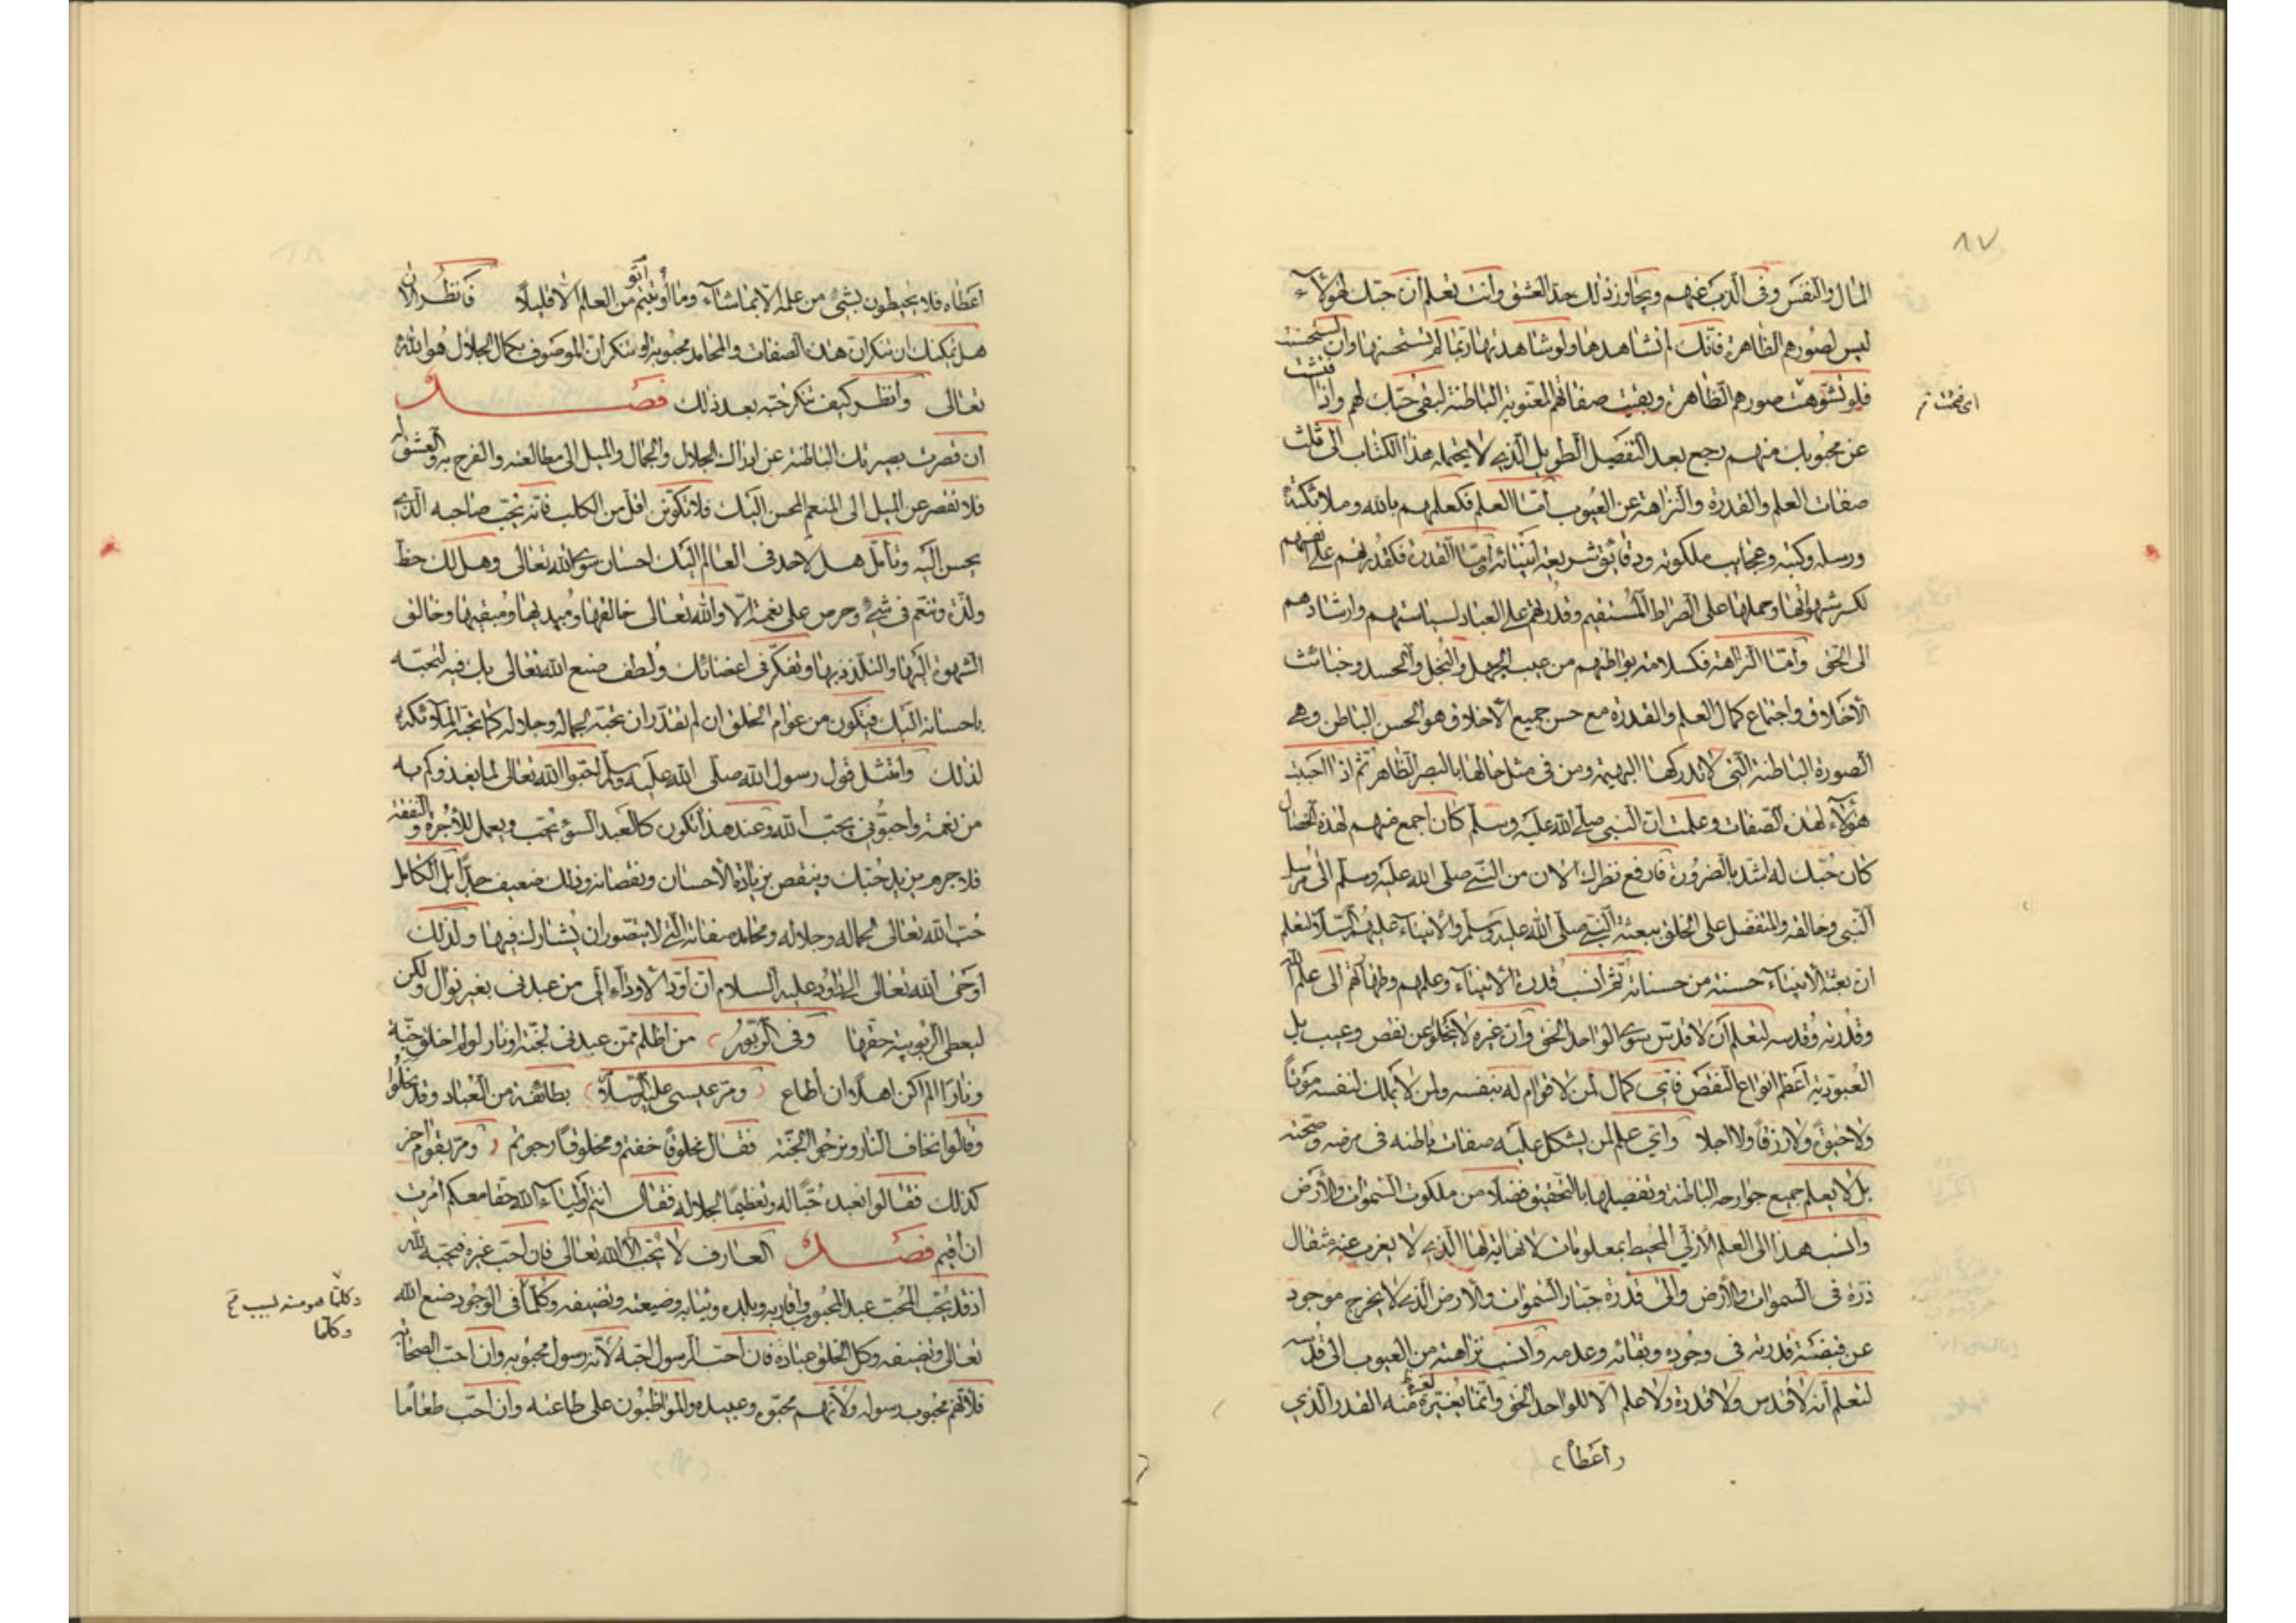 ٨٧
المال والنفس وفي الذب عنهم ويجاوز ذلك حد العشق وانت تعلم ان حبك لهؤلاء
ليس لصورهم الظاهرة فانك لم تشاهدها ولو شاهدتها ربما لم تستحسنها وان استحسنت
فلو تشوهت صورهم الظاهرة وبقيت صفاتهم المعنوية الباطنة لبقي حبك لهم واذا فتشت
عن محبوبك منهم رجع بعد التفصيل الطويل الذي لا يحتمله هذا الكتاب الى ثلث
صفات العلم والقدرة والنزاهة عن العيوب اما العلم فكعلمهم بالله وملائكته
ورسله وكتبه وعجايب ملكوته ودقائق شريعة انبيائه واما القدرة فكقدرتهم على انفسهم
لكسر شهواتها وحملها على الصراط المستقيم وقدرتهم على العباد لسياستهم وارشادهم
الى الحق واما النزاهة فكسلامة بواطنهم من عيب الجهل والبخل والحسد وخبائث
الاخلاق واجتماع كمال العلم والقدرة مع حسن جميع الاخلاق هو الحسن الباطن وهي
الصورة الباطنة التي لا تدركها البهيمة ومن في مثل حالها بالبصر الظاهر ثم اذا احببت
هؤلاء لهذه الصفات وعلمت ان النبي صلى الله عليه وسلم كان اجمع منهم لهذه الخصال
كان حبك له اشد بالضرورة فارفع نظرك الان من النبي صلى الله عليه وسلم الى مرسل
النبي وخالقه والمتفضل على الخلق ببعثة النبي صلى الله عليه وسلم والانبياء عليهم السلام لتعلم
ان بعثة الانبياء حسنة من حسناته ثم انسب قدرة الانبياء وعلمهم وطهارتهم الى علم الله
وقدرته وقدسه لتعلم ان لا قدس سوى الواحد الحق وان غيره لا يخلو عن نقص وعيب بل
العبودية اعظم انواع النقص فاي كمال لمن لا قوام له بنفسه ولمن لا يملك لنفسه موتاً
ولا حيوة ولا رزقاً ولا اجلا واي علم لمن يشكل عليه صفات باطنه في مرضه وصحته
بل لا يعلم جميع جوارحه الباطنة وتفصيلها بالتحقيق فضلا من ملكوت السموات والارض
وانسب هذا الى العلم الازلي المحيط بمعلومات لا نهاية لها الذي لا يعزب عنه مثقال
ذرة في السموات والارض والى قدرة جبار السموات والارض الذي لا يخرج موجود
عن قبضة قدرته في وجوده وبقائه وعدمه وانسب نزاهته من العيوب الى قدسه
لتعلم انه لا قدس ولا قدرة ولا علم الا للواحد الحق وانما لغيره منه القدر الذي
اعطاه
اى قبحت
اعطاه فلا يحيطون بشيء من علمه الا بما شاء وما اوتيتم من العلم الا قليلاً فانظر الان
هل يمكنك ان تنكر ان هذه الصفات والمحامد محبوبة او تنكر ان الموصوف بكمال الجلال هو الله
تعالى وانظر كيف تنكر حبه بعد ذلك فصل
ان قصرت بصيرتك الباطنة عن ادراك الجلال والجمال والميل الى مطالعته والفرح به والعشق له
فلا تقصر عن الميل الى المنعم المحسن اليك فلا تكونن اقل من الكلب فانه يحب صاحبه الذي
يحسن اليه وتأمل هل لاحد في العالم اليك احسان سوى الله تعالى وهل لك حظ
ولذة وتنعم في شيء وحرص على نعمة الا والله تعالى خالقها ومبديها ومبقيها وخالق
الشهوة اليها والتلذذ بها وتفكر في اعضائك ولطف صنع الله تعالى بك فيه لتحبه
باحسانه اليك فتكون من عوام الخلق ان لم تقدر ان تحبه لجماله وجلاله كما تحبه الملائكة
لذلك وامتثل قول رسول الله صلى الله عليه وسلم احبوا الله تعالى لما يغذوكم به
من نعمة واحبوني بحب الله وعند هذا تكون كالعبد السوء تحب ويعمل للاجرة والنفقة
فلا جرم يزيد حبك وينقص بزيادة الاحسان ونقصانه وذلك ضعيف جداً بل الكامل
حب الله تعالى لجماله وجلاله ومحامد صفاته التي لا يتصور ان يشارك فيها ولذلك
اوحى الله تعالى الى داود عليه السلام ان اود الاوداء الي من عبدني بغير نوال ولكن
ليعطي الربوبية حقها وفي الزبور من اظلم ممن عبدني لجنة او نار لو لم اخلق جنة
ونارا الم اكن اهلا ان اطاع ومر عيسى عليه السلام بطائفة من العباد وقد نحلوا
وقالوا نخاف النار ونرجو الجنة فقال مخلوقاً خفتم ومخلوقاً رجوتم ومر بقوم اخر
كذلك فقالوا نعبده حباً له وتعظيماً لجلاله فقال انتم اولياء الله حقا معكم امرت
ان اقيم فصل العارف لا يحب الا الله تعالى فان احب غيره فيحبه لله
اذ قد يحب المحب عبد المحبوب واقاربه وبلده وثيابه وضيعته وتصنيفه وكلما في الوجود صنع الله
تعالى وتصنيفه وكل الخلق عباده فان احب الرسول احبه لانه رسول محبوبه وان احب الصحابة
فلانهم محبوب رسوله ولانهم محبوه وعبيده والمواظبون على طاعته وان احب طعاما
وكلما هو منه نسيب
وكلما